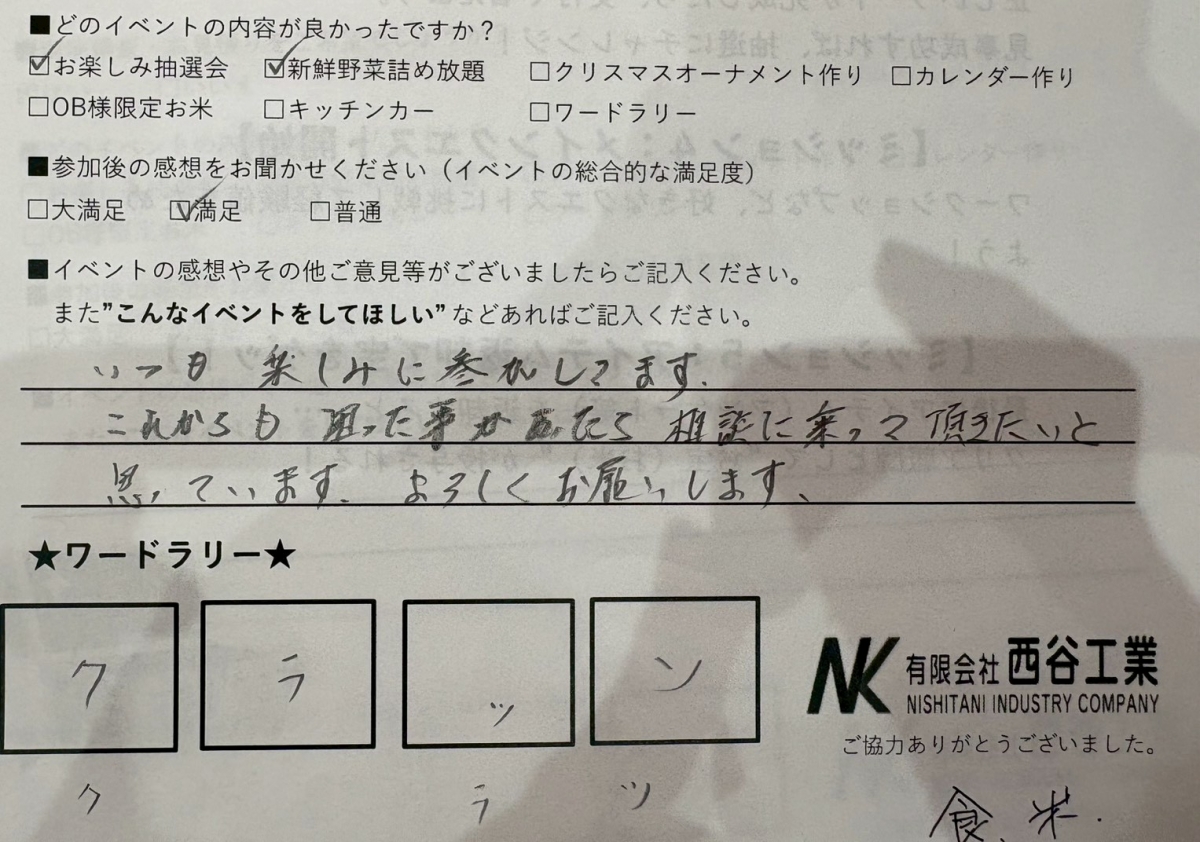 ■どのイベントの内容が良かったですか？
☑お楽しみ抽選会 ☑新鮮野菜詰め放題 □クリスマスオーナメント作り □カレンダー作り
□OB様限定お米 □キッチンカー □ワードラリー
■参加後の感想をお聞かせください（イベントの総合的な満足度）
□大満足 ☑満足 □普通
■イベントの感想やその他ご意見等がございましたらご記入ください。
また"こんなイベントをしてほしい"などあればご記入ください。
いつも 楽しみに参加してます.
これからも 困った事があったら 相談に乗って頂きたいと
思っています. よろしくお願いします、
★ワードラリー★
ク ラ ッ ン
NK 有限会社 西谷工業
NISHITANI INDUSTRY COMPANY
ご協力ありがとうございました。
ク ラ ツ
食、米.